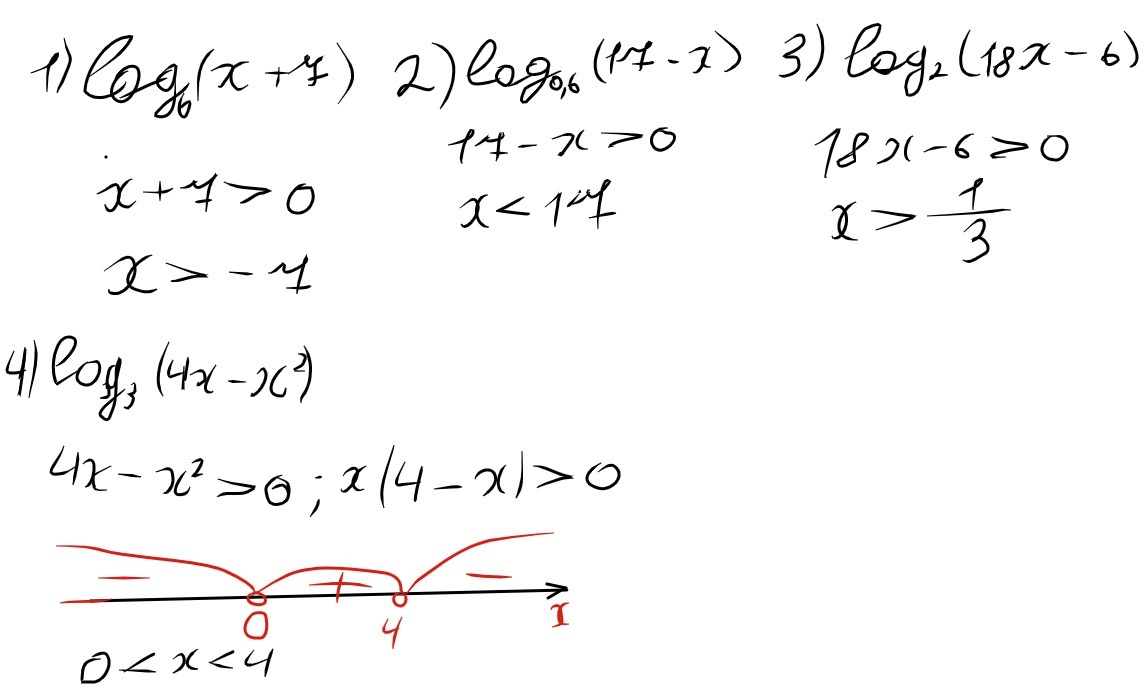 1) log₆(x + 7) 2) log₀,₆(17 - x) 3) log₂(18x - 6)
x + 7 > 0 17 - x > 0 18x - 6 > 0
x > - 7 x < 17 x > 1/3
4) log₃(4x - x²)
4x - x² > 0 ; x(4 - x) > 0
- + -
0 4 x
0 < x < 4